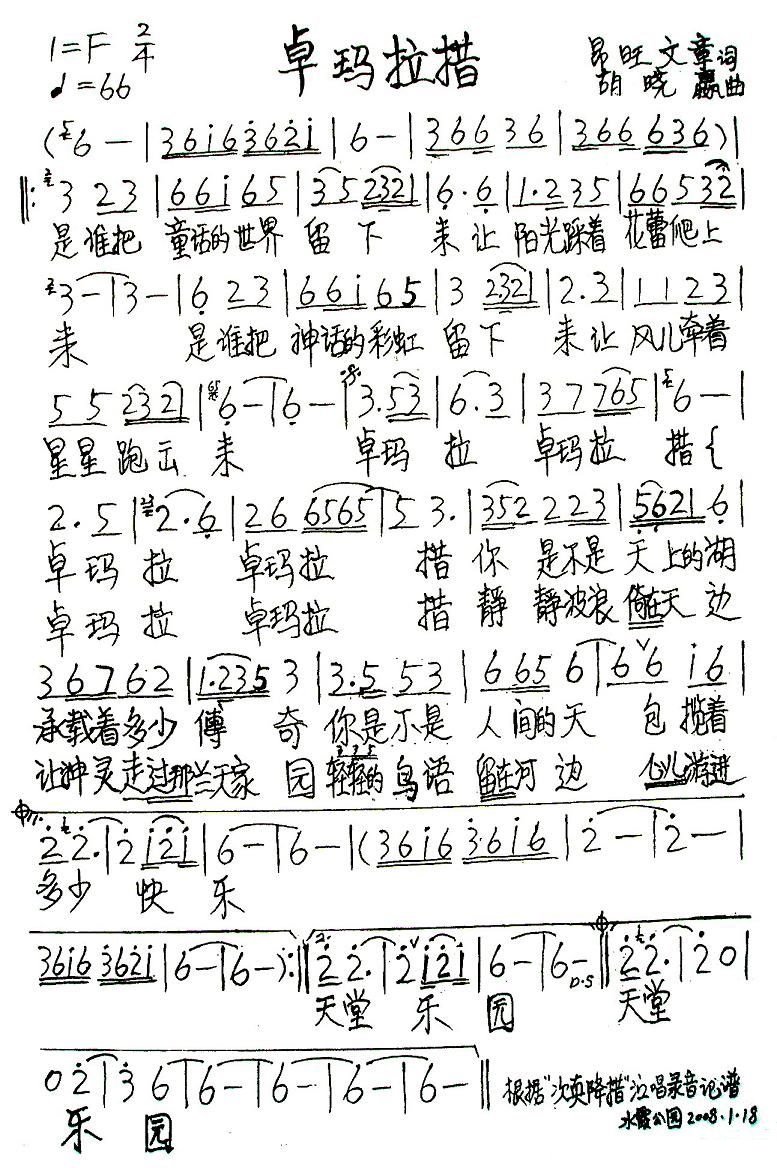 1=F 2/4
♩=66
卓玛拉措
昂旺文章词
胡晓 曲
(6 — | 3 6 i 6 3 6 2 i | 6 — | 3 6 6 3 6 | 3 6 6 6 3 6 ) |
‖: 3 2 3 | 6 6 i 6 5 | 3 5 2 3 2 1 | 6 · 6 | 1 · 2 3 5 | 6 6 5 3 2 |
是谁把 童话的世界 留 下 来 让 阳光踩着 花蕾爬上
3 — | 3 — | 6 2 3 | 6 6 i 6 5 | 3 2 3 2 1 | 2 . 3 | 1 1 2 3 |
来 是谁把 神话的彩虹 留 下 来 让 风儿牵着
5 5 2 3 2 1 | 6 — | 6 — | 3 . 5 3 | 6 . 3 | 3 7 7 6 5 | 6 — |
星星 跑出 来 卓玛 拉 卓玛拉 措 {
2 . 5 | 2 . 6 | 2 6 6 5 6 5 | 5 3 . | 3 5 2 2 2 3 | 5 6 2 1 6 |
卓玛 拉 卓玛拉 措 你 是不是 天上的湖
卓玛 拉 卓玛拉 措 静 静波浪 倚在天 边
3 6 7 6 2 | 1 . 2 3 5 3 | 3 . 5 5 3 | 6 6 5 6 | 6 6 i 6 |
承载着多少 傳 奇 你是不是 人间的天 包 揽着
让神灵走过那兰天家 园 轻轻的 鸟语 留在河 边 心儿游进
2 2 . | 2 i 2 i | 6 — | 6 — | ( 3 6 i 6 3 6 i 6 | 2 — | 2 — |
多少 快 乐
3 6 i 6 3 6 2 i | 6 — | 6 — ) :‖ 2. 2 2 . | 2 i 2 i | 6 — | 6 — D.S ‖ 2 2 . | 2 0 |
天堂 乐 园 天堂
0 2 | 3 6 | 6 — | 6 — | 6 — | 6 — | 6 — ‖ 根据"次卖降措"泣唱录音记谱
乐 园 水霞公园 2008.1.18